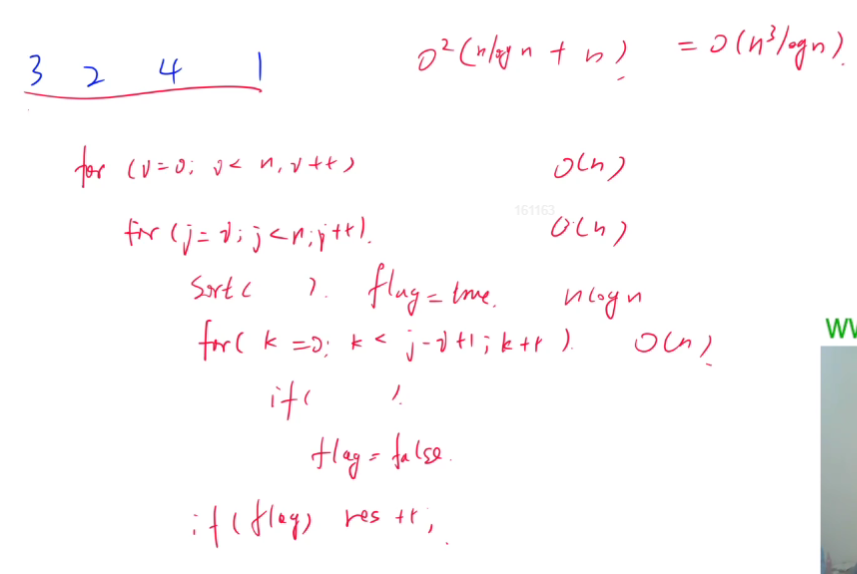 3 2 4 1
O²(nlogn + n) = O(n³logn).
for (i=0; i< n, i++) O(n)
161163
for (j=i; j<n; j++). O(n)
sort( ). flag=true. nlogn
for( k =0; k < j-i+1; k++ ). O(n)
if( ).
flag = false.
if(flag) res ++;